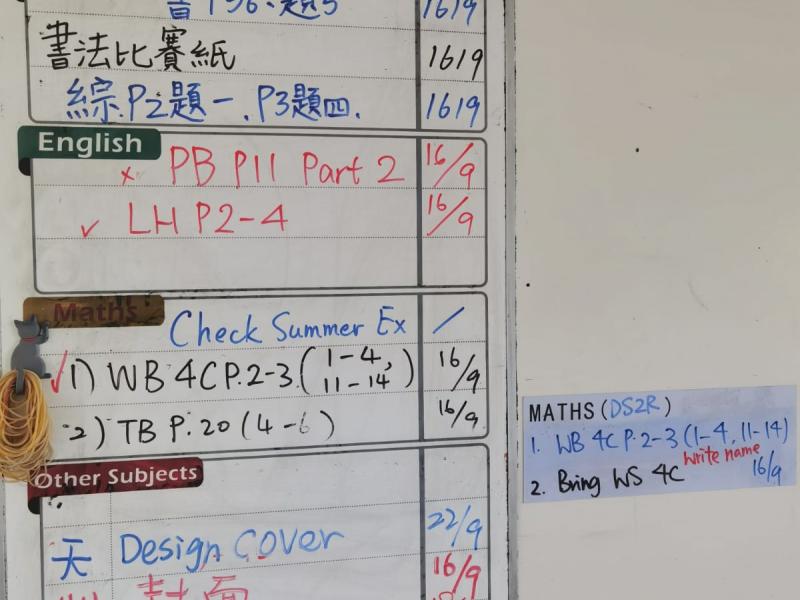 書法比賽紙 1619
綜.P2題一.P3題四. 1619
English
× PB P11 Part 2 16/9
✓ LH P2-4 16/9
Maths
Check Summer Ex /
✓1) WB 4C P.2-3 (1-4, 11-14) 16/9
2) TB P.20 (4-6) 16/9
Other Subjects
天 Design Cover 22/9
封面 16/9
MATHS (DS2R)
1. WB 4C P.2-3 (1-4, 11-14)
write name
16/9
2. Bring WS 4C